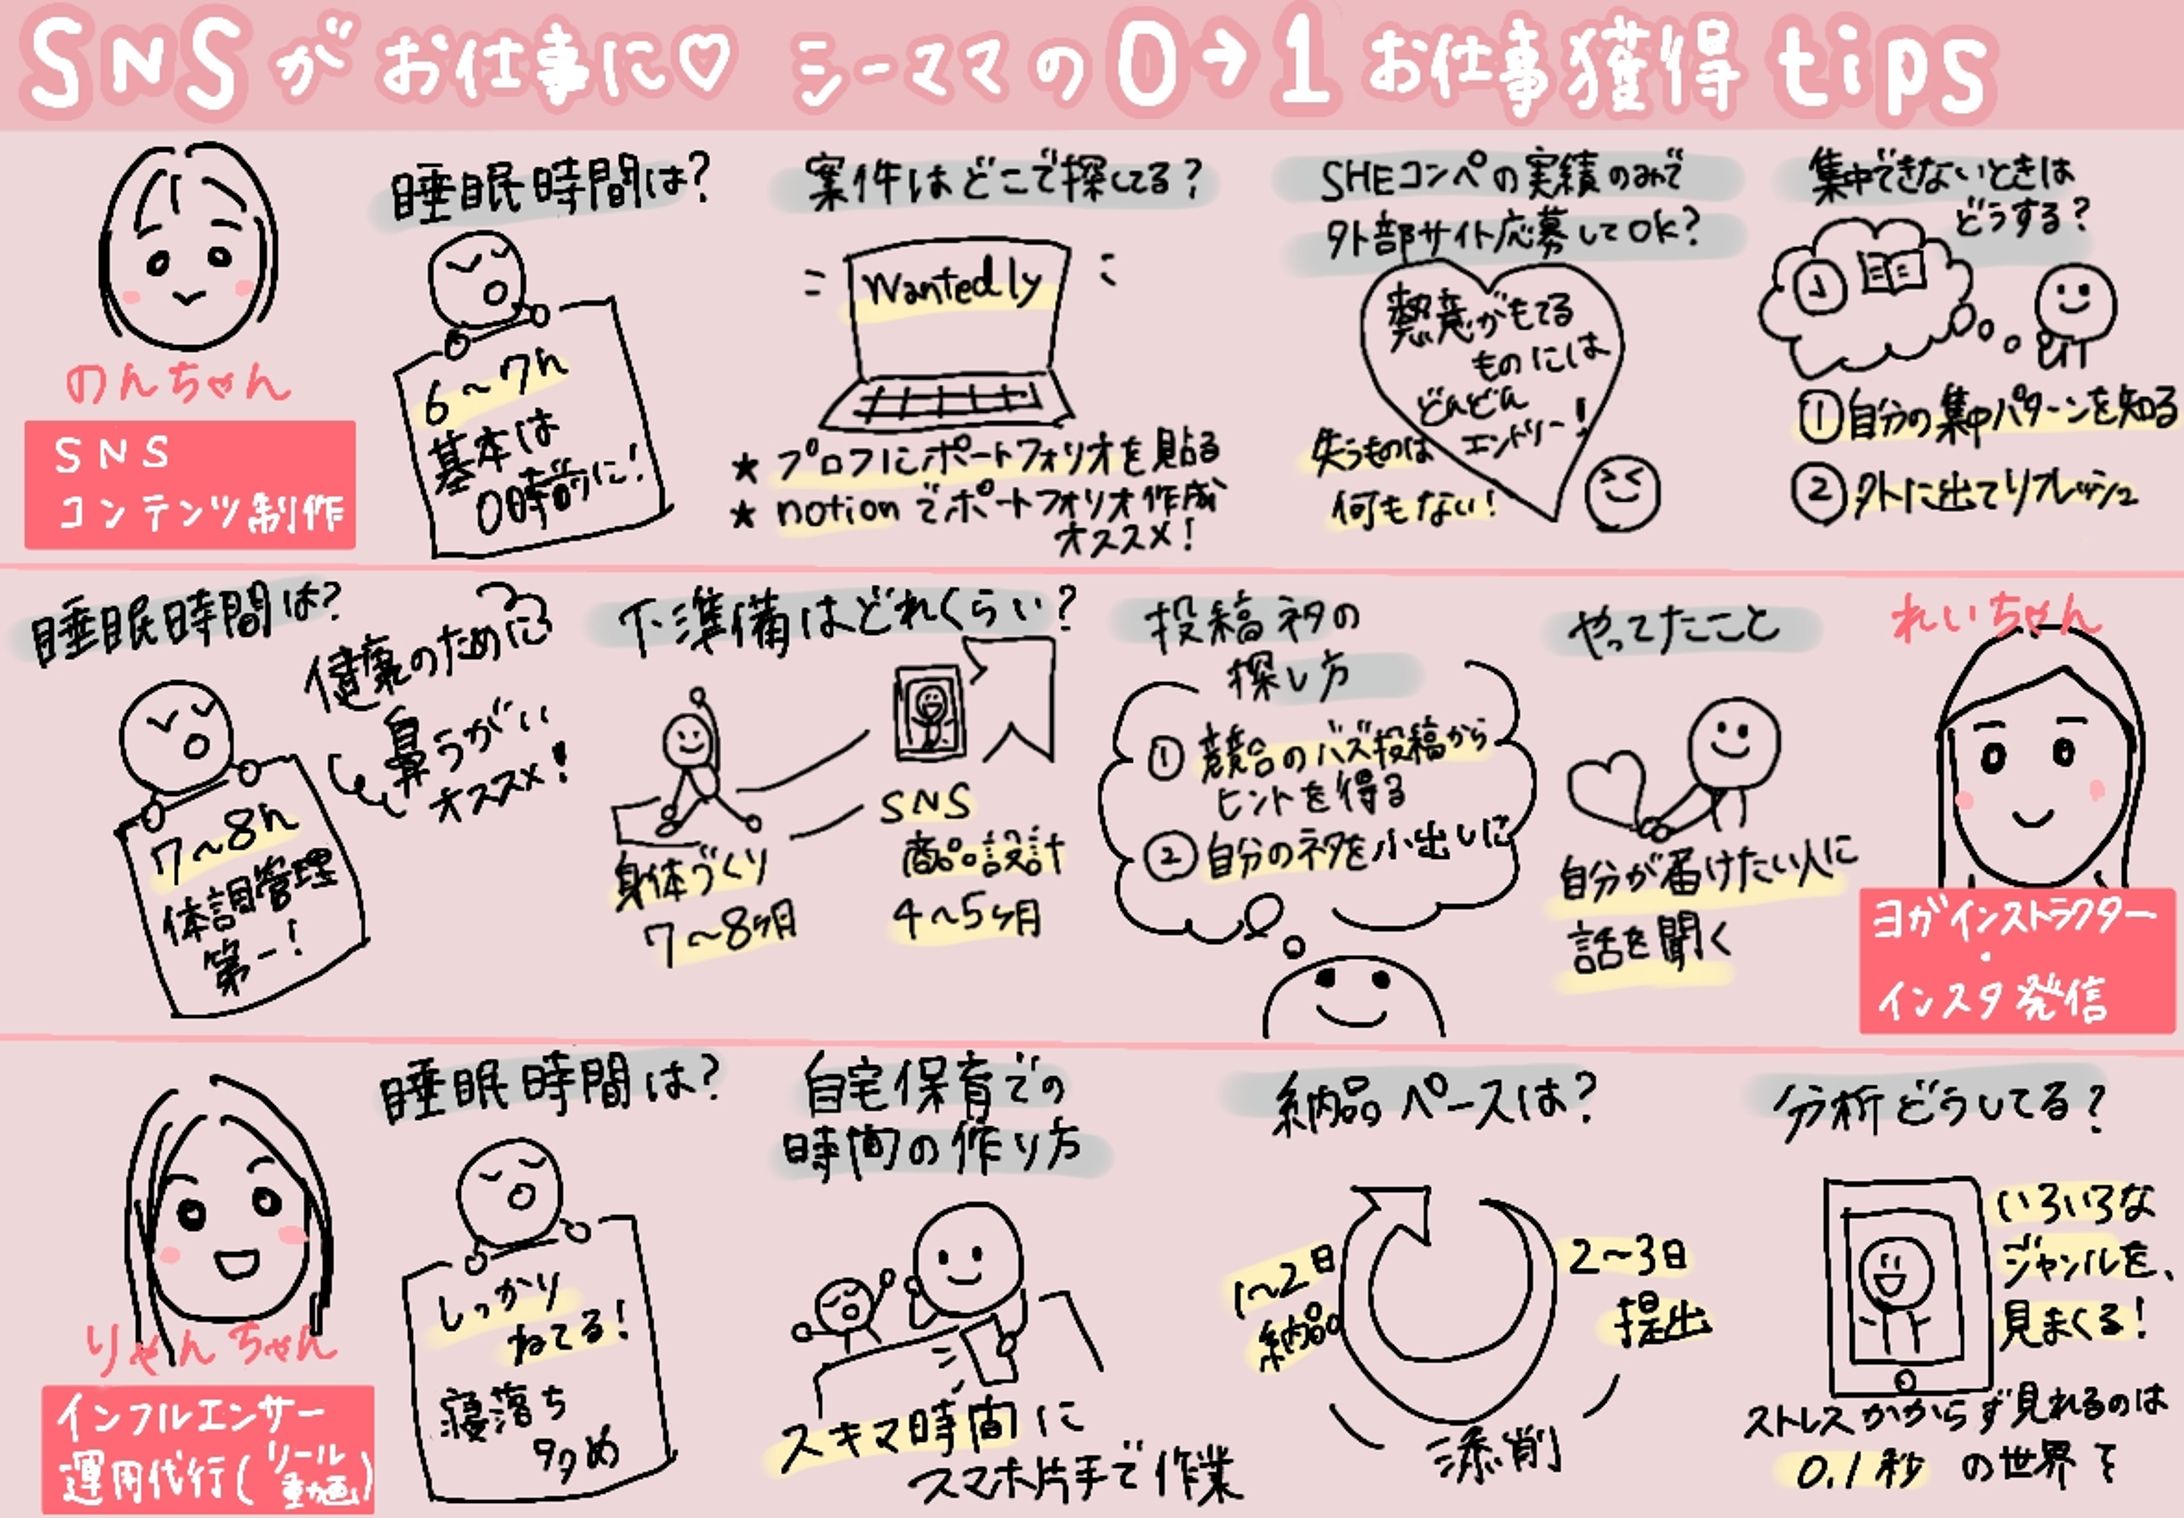 SNSがお仕事に♡ シーママの0→1お仕事獲得tips
のんちゃん
SNS
コンテンツ制作
睡眠時間は?
6〜7h
基本は
0時前に!
案件はどこで探してる?
Wantedly
★ プロフにポートフォリオを貼る
★ notionでポートフォリオ作成
オススメ!
SHEコンペの実績のみで
外部サイト応募してOK?
熱意がもてる
ものには
どんどん
エントリー!
失うものは
何もない!
集中できないときは
どうする?
①自分の集中パターンを知る
②外に出てリフレッシュ
睡眠時間は?
健康のために
鼻うがい
オススメ!
7〜8h
体調管理
第一!
下準備はどれくらい?
身体づくり
7〜8ヶ月
SNS
商品設計
4〜5ヶ月
投稿ネタの
探し方
① 競合のバズ投稿から
ヒントを得る
② 自分のネタを小出しに
やってたこと
自分が届けたい人に
話を聞く
れいちゃん
ヨガインストラクター
・
インスタ発信
りゃんちゃん
インフルエンサー
運用代行(リール動画)
睡眠時間は?
しっかり
ねてる!
寝落ち
多め
自宅保育での
時間の作り方
スキマ時間に
スマホ片手で作業
納品ペースは?
1〜2日
納品
2〜3日
提出
添削
分析どうしてる?
いろいろな
ジャンルを、
見まくる!
ストレスかからず見れるのは
0.1秒の世界を